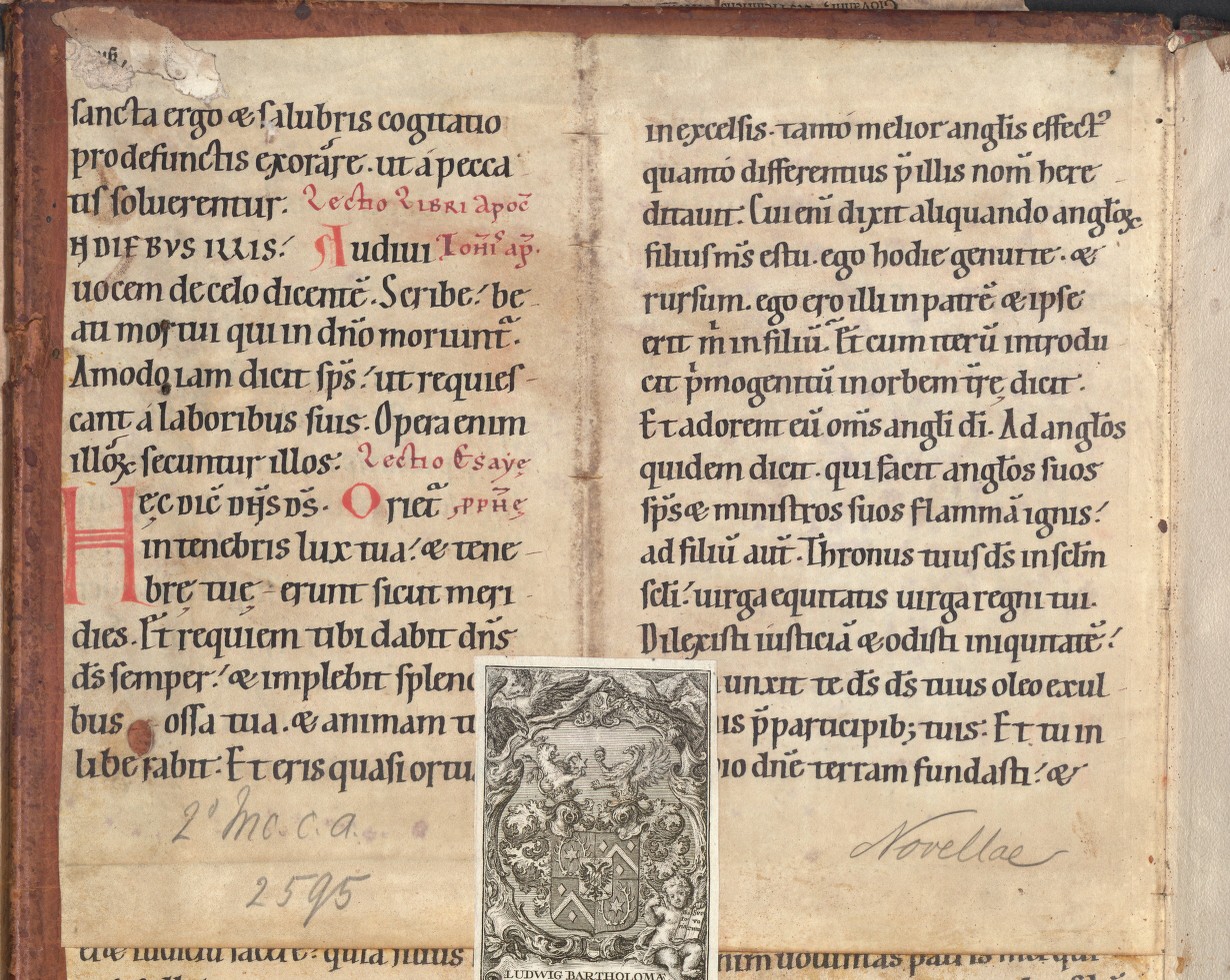 sancta ergo & salubris cogitatio
pro defunctis exorare. ut a pecca
tis soluerentur. Lectio Libri Apoc̄
N DIEBVS ILLIS. Audiui Ioh̄is ap̄.
uocem de celo dicentē. Scribe. be
ati mortui qui in dn̄o moriunt̄.
Amodo iam dicit sp̄s. ut requies
cant á laboribus suis. Opera enim
illoꝝ secuntur illos. Lectio Esaye
Hęc dic̄ dn̄s ds̄. Oriet̄ ꝓph̄ę
in tenebris lux tua. & tene
brę tuę erunt sicut meri
dies. Et requiem tibi dabit dn̄s
ds̄ semper. & implebit splend
bus ossa tua. & animam t
liberabit. Et eris quasi ortu
2º Mc. c. a.
2595
in excelsis. tanto melior angl̄is effectꝰ
quanto differentius p̄ illis nom̄ here
ditauit. Cui eni̅ dixit aliquando angl̄oꝝ
filius m̄s es tu. ego hodie genui te. &
rursum. ego ero illi in patrē & ipse
erit m̍ in filiū. Et cum iterū introdu
cit p̍mogenitū in orbem tr̄ę dicit.
Et adorent eū om̄s angl̄i dī. Ad angl̄os
quidem dicit. qui facit angl̄os suos
sp̄s & ministros suos flammā ignis.
ad filiū aut̄. Thronus tuus ds̄ in scl̄m
scl̄i. uirga equitatis uirga regni tui.
Dilexisti iusticiā & odisti iniquitatē.
unxit te ds̄ ds̄ tuus oleo exul
is p̄ participib; tuis. Et tu in
io dn̄e terram fundasti. &
Novellae
LUDWIG BARTHOLOMÆ